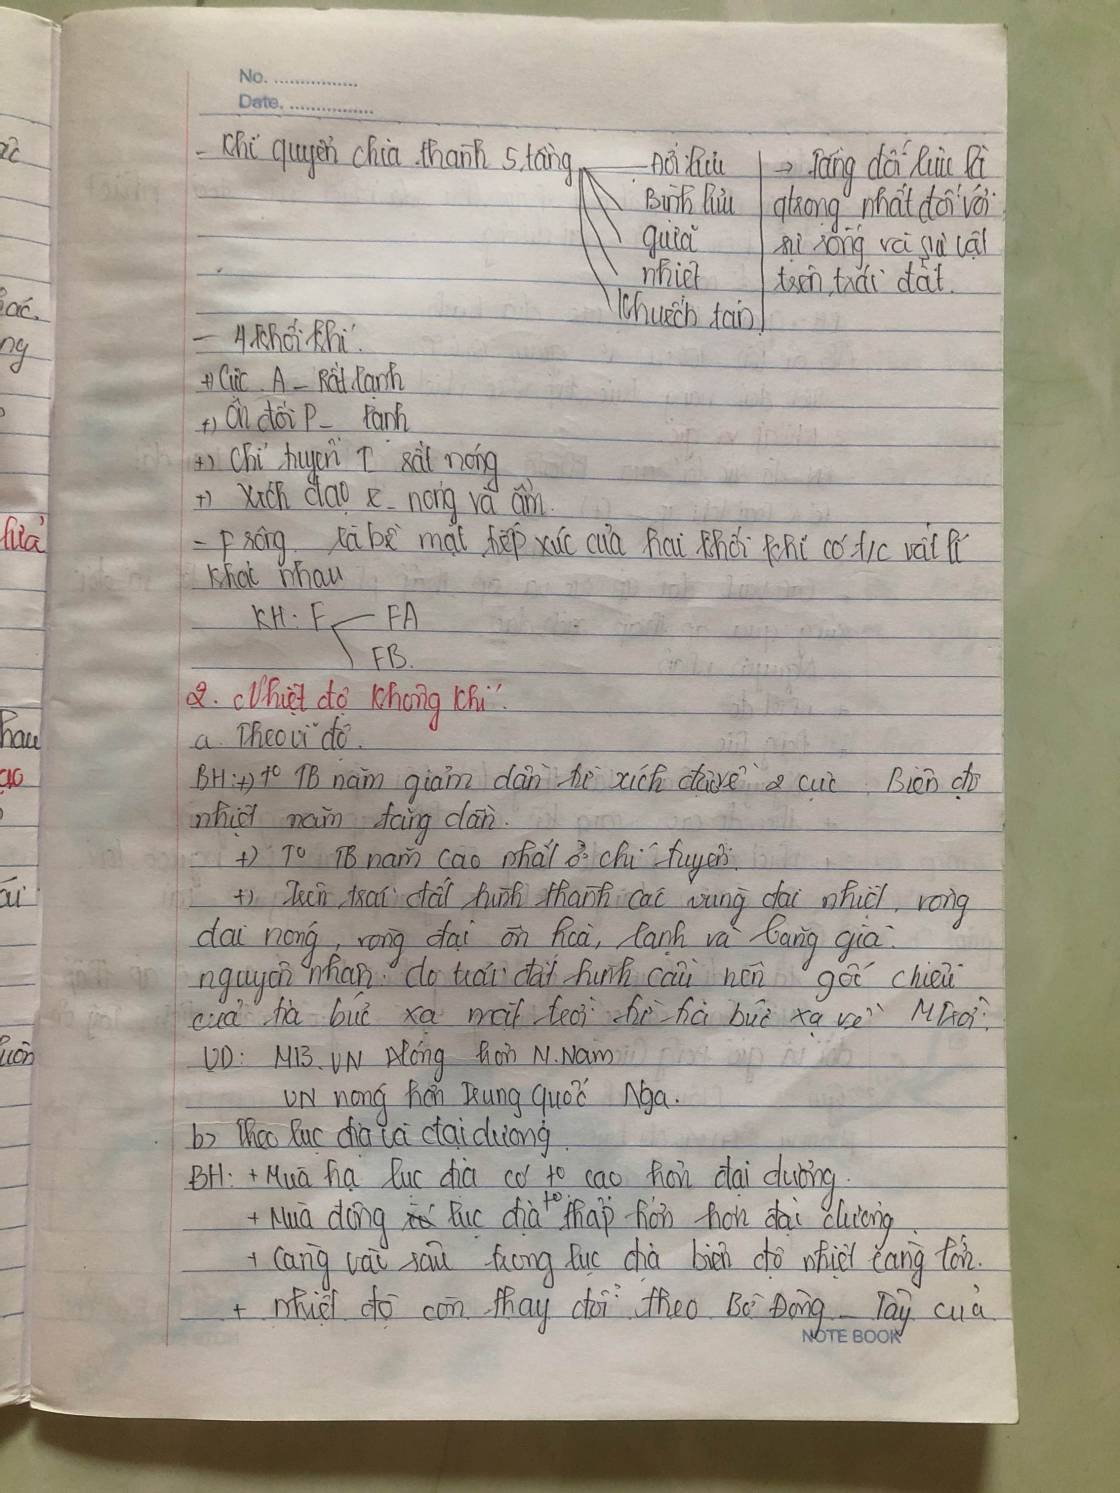 No. ................
Date. ................
- Khí quyển chia thành 5 tầng
Đối lưu
Bình lưu
giữa
nhiệt
Khuếch tán
→ Tầng đối lưu là
qtrọng nhất đối với
sự sống và sự vật
trên trái đất.
- 4 khối khí.
+) Cực A - Rất lạnh
+) Ôn đới P - lạnh
+) Chí tuyến T rất nóng
+) Xích đạo E - nóng và ẩm.
- F rông là bề mặt tiếp xúc của hai khối khí có t/c vật lí
khác nhau
KH: F FA
FB.
2. Nhiệt độ không khí.
a. Theo vĩ độ.
BH: +) t° TB năm giảm dần từ xích đạo về 2 cực. Biên độ
nhiệt năm tăng dần.
+) T° TB năm cao nhất ở chí tuyến.
+) Trên trái đất hình thành các vùng đai nhiệt, vòng
đai nóng, vòng đai ôn hoà, lạnh và băng giá.
nguyên nhân: do trái đất hình cầu nên góc chiếu
của tia bức xạ mặt trời từ tia bức xạ về MTrời.
VD: MB. VN Nóng hơn N. Nam
VN nóng hơn Trung Quốc Nga.
b> Theo lục địa và đại dương.
BH: + Mùa hạ lục địa có t° cao hơn đại dương.
+ Mùa đông lục địa t° thấp hơn hơn đại dương.
+ Càng vài sâu trong lục địa biên độ nhiệt càng lớn.
+ nhiệt độ còn thay đổi theo Bờ Đông - Tây của
NOTE BOOK